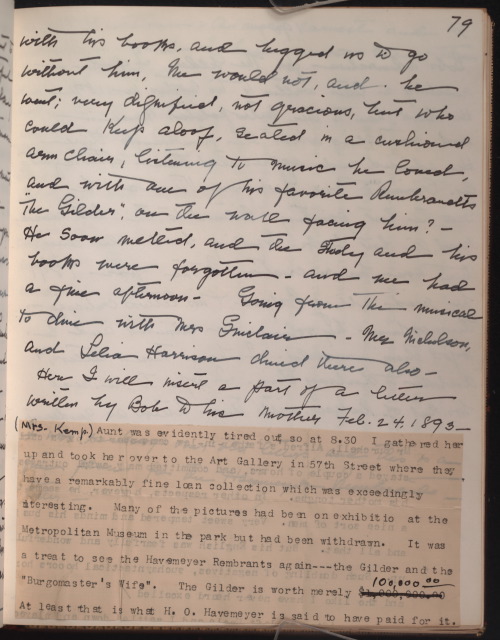 79
with his books, and begged us to go
without him, we would not, and he
went; very dignified, not gracious, but who
could keep aloof, seated in a cushioned
arm chair, listening to music he loved,
and with one of his favorite Rembrandts
"The Gilder", on the wall facing him? -
He soon melted, and the study and his
books were forgotten - and we had
a fine afternoon - Going from the musical
to dine with Mrs Sinclair - Mrs Nicholson,
and Lelia Harrison dined there also -
Here I will insert a part of a letter
written by Bob to his mother Feb. 24. 1893 -
(Mrs. Kemp.) Aunt was evidently tired out so at 8.30 I gathered her
up and took her over to the Art Gallery in 57th Street where they
have a remarkably fine loan collection which was exceedingly
nteresting. Many of the pictures had been on exhibitio at the
Metropolitan Museum in the park but had been withdrawn. It was
a treat to see the Havemeyer Rembrants again---the Gilder and the
"Burgomaster's Wife". The Gilder is worth merely $1,000,000.00 100,000 00
At least that is what H. O. Havemeyer is said to have paid for it.